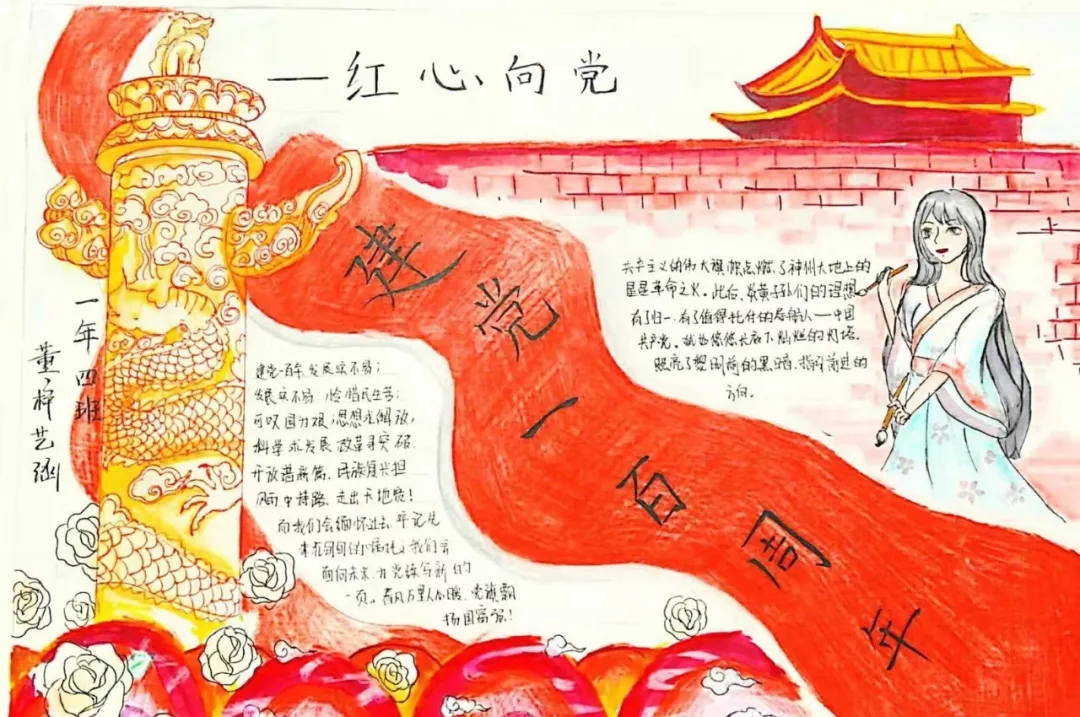 —红心向党
建党一百周年
一年四班
董梓艺涵
共产主义的伟大旗帜点燃了神州大地上的
星星革命之火。此后,炎黄子孙们的理想
有了归一,有了值得托付的 人——中国
共产党。就如悠悠长夜下灿烂的灯塔,
照亮了黎明前的黑暗,指引前进的
方向。
建党一百年,发展实不易;
发展实不易, 惜民生苦;
可叹国力艰,思想先解放,
科学求发展,改革寻突破.
开放谱新篇,民族复兴担
风雨中铸路,走出天地宽!
而我们会缅怀过去,牢记先
辈 们的嘱托,我们会
面向未来,为党续写新的
一页。春风万里人心暖,党旗飘
扬国富强!